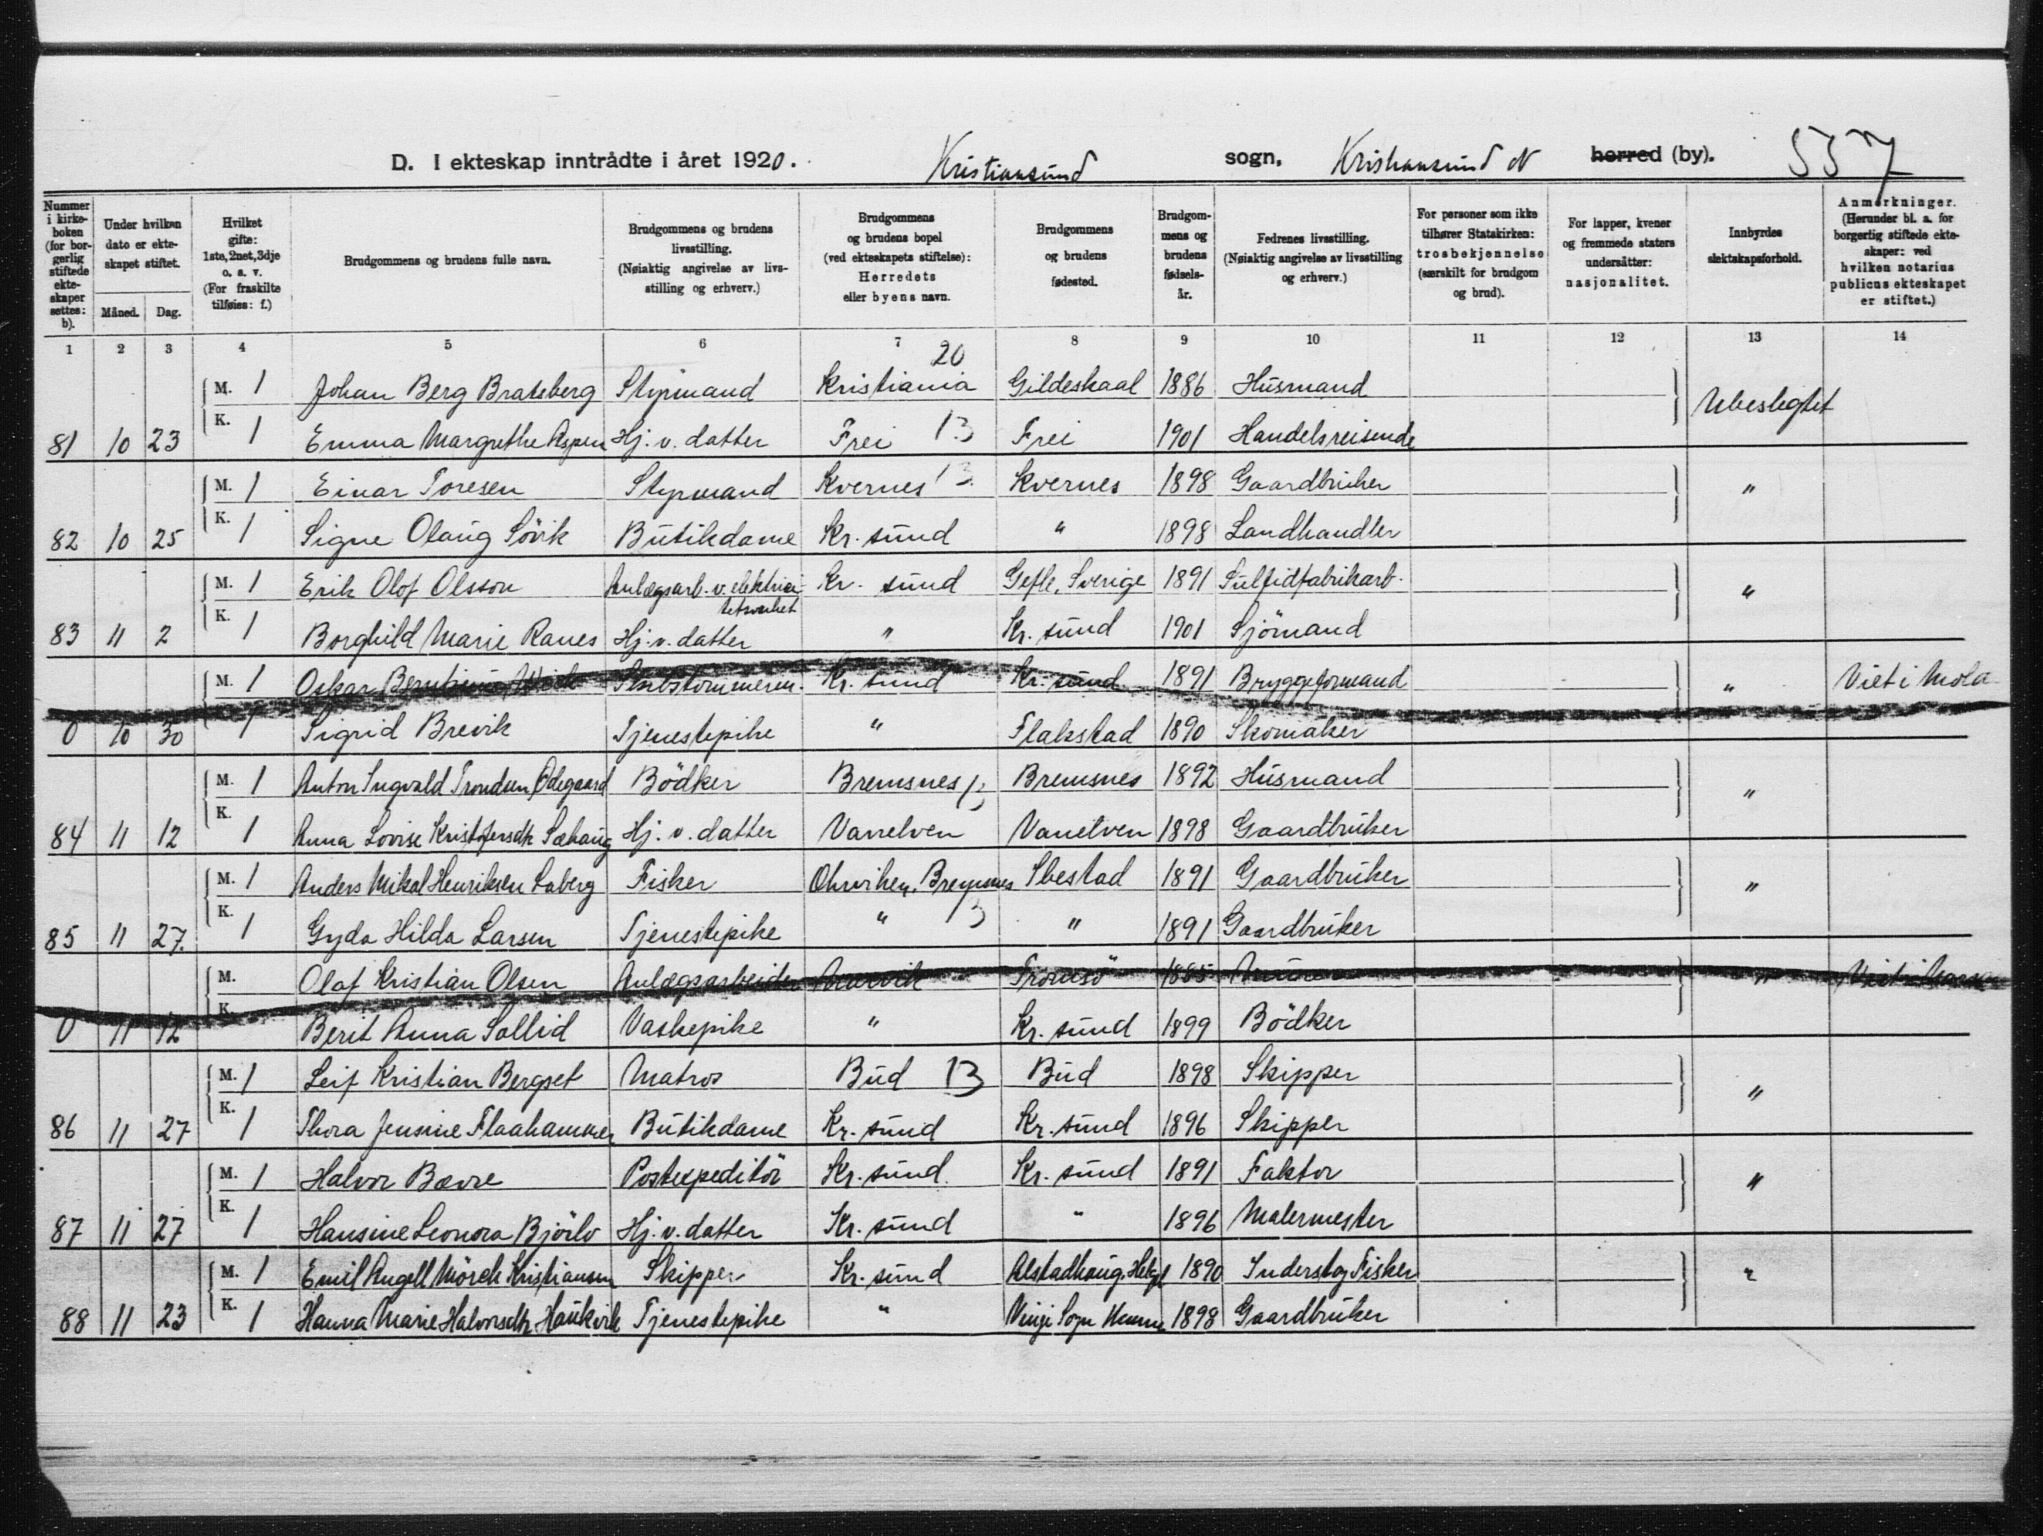 D. I ekteskap inntrådte i året 1920. Kristiansund sogn, Kristiansund N herred (by). 557
Nummer i kirkeboken (for borgerlig stiftede ekteskaper settes: b).
Under hvilken dato er ekteskapet stiftet.
Måned. Dag.
Hvilket gifte: 1ste, 2net, 3dje o. s. v. (For fraskilte tilføies: f.)
Brudgommens og brudens fulle navn.
Brudgommens og brudens livsstilling. (Nøiaktig angivelse av livsstilling og erhverv.)
Brudgommens og brudens bopel (ved ekteskapets stiftelse): Herredets eller byens navn.
Brudgommens og brudens fødested.
Brudgommens og brudens fødselsår.
Fedrenes livsstilling. (Nøiaktig angivelse av livsstilling og erhverv.)
For personer som ikke tilhører Statskirken: trosbekjennelse (særskilt for brudgom og brud).
For lapper, kvener og fremmede staters undersåtter: nasjonalitet.
Innbyrdes slektskapsforhold.
Anmerkninger. (Herunder bl. a. for borgerlig stiftede ekteskaper: ved hvilken notarius publicus ekteskapet er stiftet.)
1 2 3 4 5 6 7 8 9 10 11 12 13 14
20
M. 1 Johan Berg Bratsberg Styrmand Kristiania Gildeskaal 1886 Husmand Ubeslegtet
81 10 23 K. 1 Emma Margrethe Aspen Hj. v. datter Frei 13 Frei 1901 Handelsreisende
M. 1 Einar Toresen Styrmand Kvernes 13 Kvernes 1898 Gaardbruker "
82 10 25 K. 1 Signe Olaug Sövik Butikdame Kr. sund " 1898 Landhandler
M. 1 Erik Olof Olsson Anlægsarb. v. elektricitetsverket Kr. sund Gefle, Sverige 1891 Sulfidfabrikarb. "
83 11 2 K. 1 Borghild Marie Ranes Hj. v. datter " Kr. sund 1901 Sjömand
M. 1 Oskar Kr. sund Kr. sund 1891 Bryggeformand " Viet i Molde
0 10 30 1 Sigrid Brevik Tjenestepike " Flakstad 1890 Skomaker
M. 1 Anton Ingvald Trondsen Ödegaard Bödker Bremsnes 13 Bremsnes 1892 Husmand "
84 11 12 K. 1 Anna Lovise Kristofersdtr Sæhaug Hj. v. datter Vanelven Vanelven 1898 Gaardbruker
M. 1 Anders Mikal Henriksen Laberg Fisker Ohrviken, Bremsnes Ibestad 1891 Gaardbruker "
85 11 27. K. 1 Gyda Hilda Larsen Tjenestepike " 13 " 1891 Gaardbruker
M. Olaf Kristian Olsen Anlægsarbeider Tromsö 1885 " Viet i
0 11 12 K. Berit Anna Sollid Vaskepike " Kr. sund 1899 Bödker
M. 1 Leif Kristian Bergset Matros Bud 13 Bud 1898 Skipper "
86 11 27 K. 1 Thora Jensine Flaahammer Butikdame Kr. sund Kr. sund 1896 Skipper
M. 1 Halvor Bævre Postexpeditör Kr. sund. Kr. sund 1891 Faktor "
87 11 27 K. 1 Hansine Leonora Bjöilo Hj. v. datter Kr. sund " 1896 Malermester
M. 1 Emil Angell Mörch Kristiansen Skipper Kr. sund Alstadhaug, Helgl 1890 Inderst og Fisker "
88 11 23 K. 1 Hanna Marie Halvorsdtr Haukvik Tjenestepike " Vinje Sogn Hemne 1898 Gaardbruker